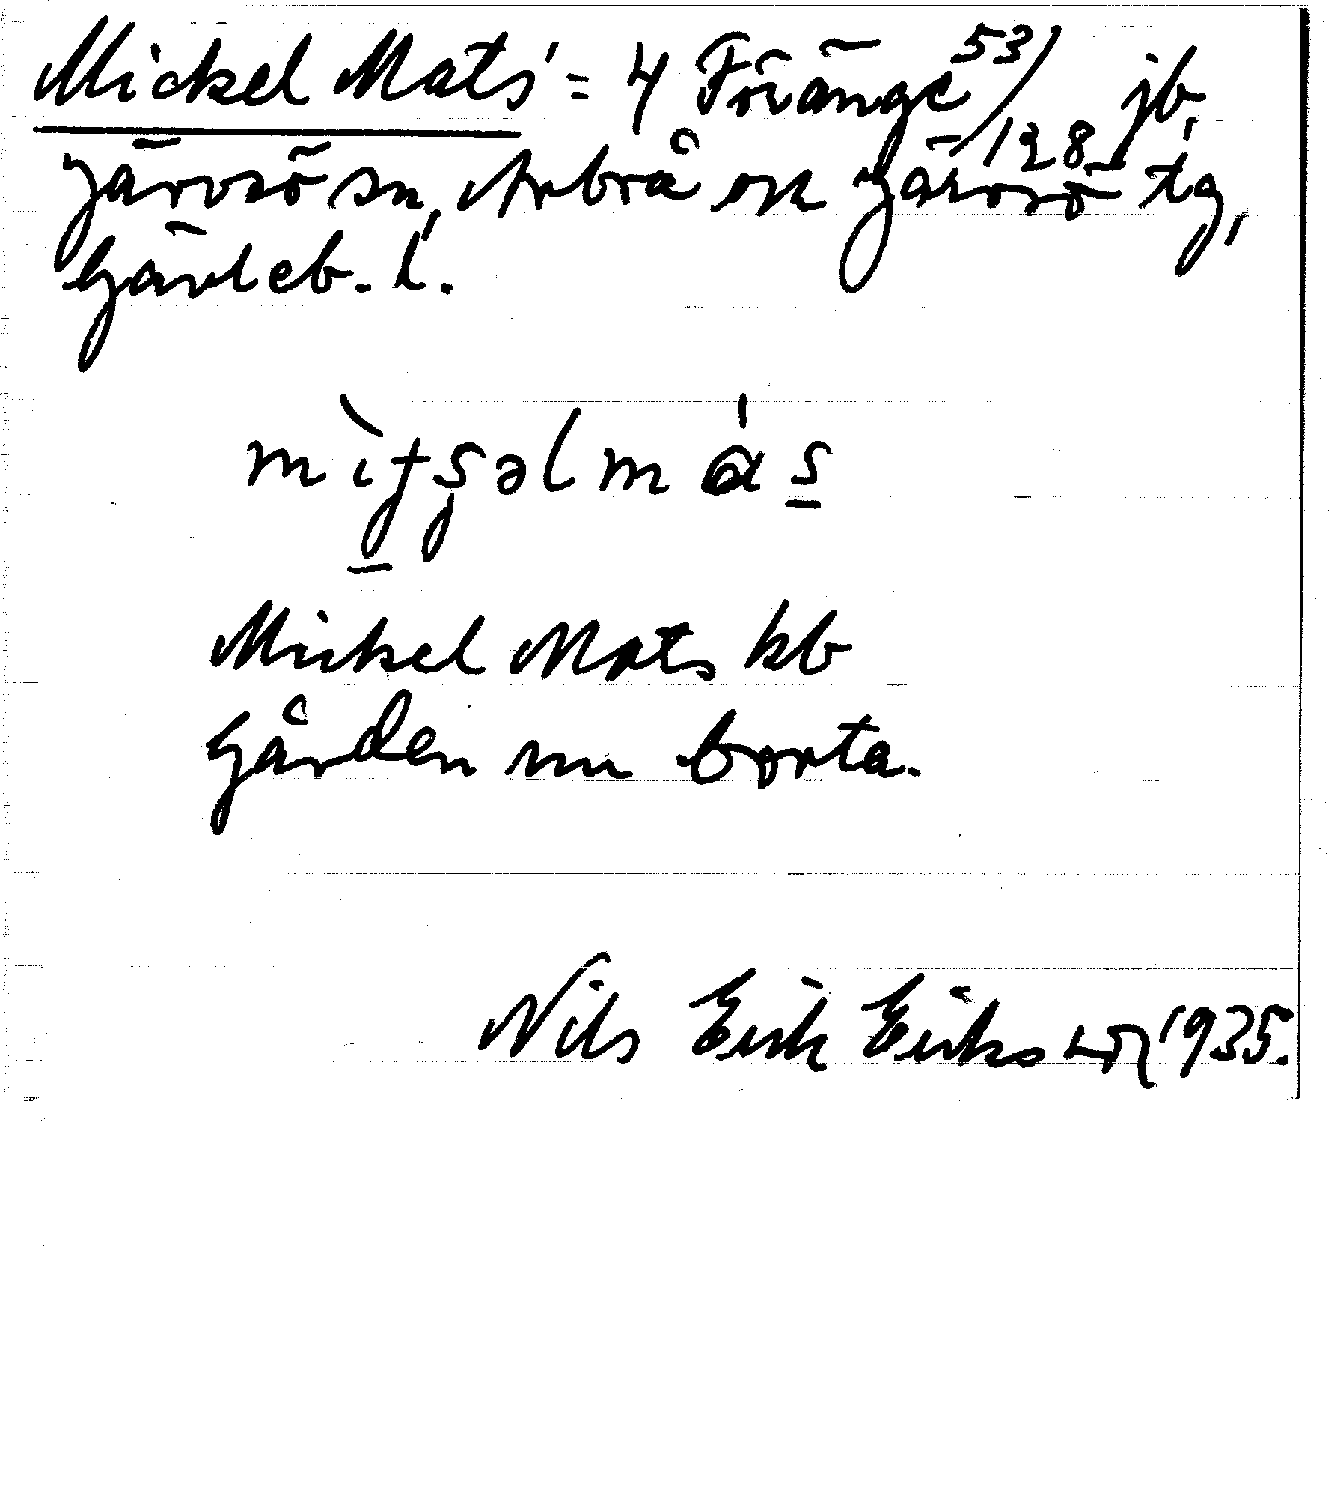 Mickel Mats' = 4 Föränge 53/128 jb,
Järvsö sn, Arbrå ok Järvsö tg,
Gävleb. l.
Mickel Mats kb
Gården nu borta.
Nils Erik Eriksson 1935.